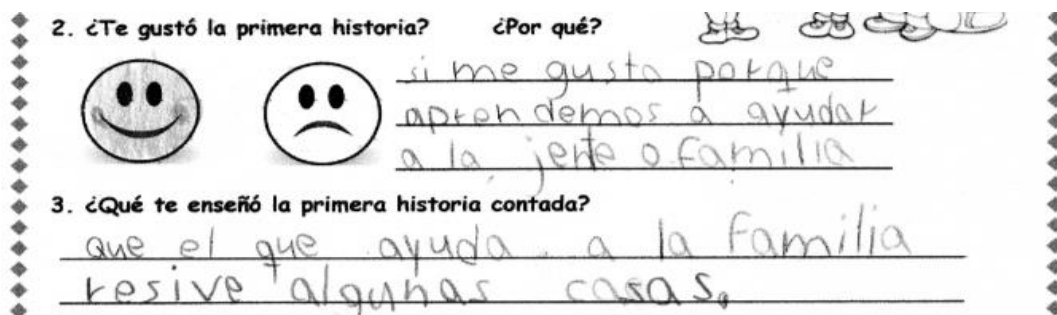 2. ¿Te gustó la primera historia? ¿Por qué?
si me gusto porque
aprendemos a ayudar
a la jente o familia
3. ¿Qué te enseñó la primera historia contada?
que el que ayuda a la familia
resive algunas casas.